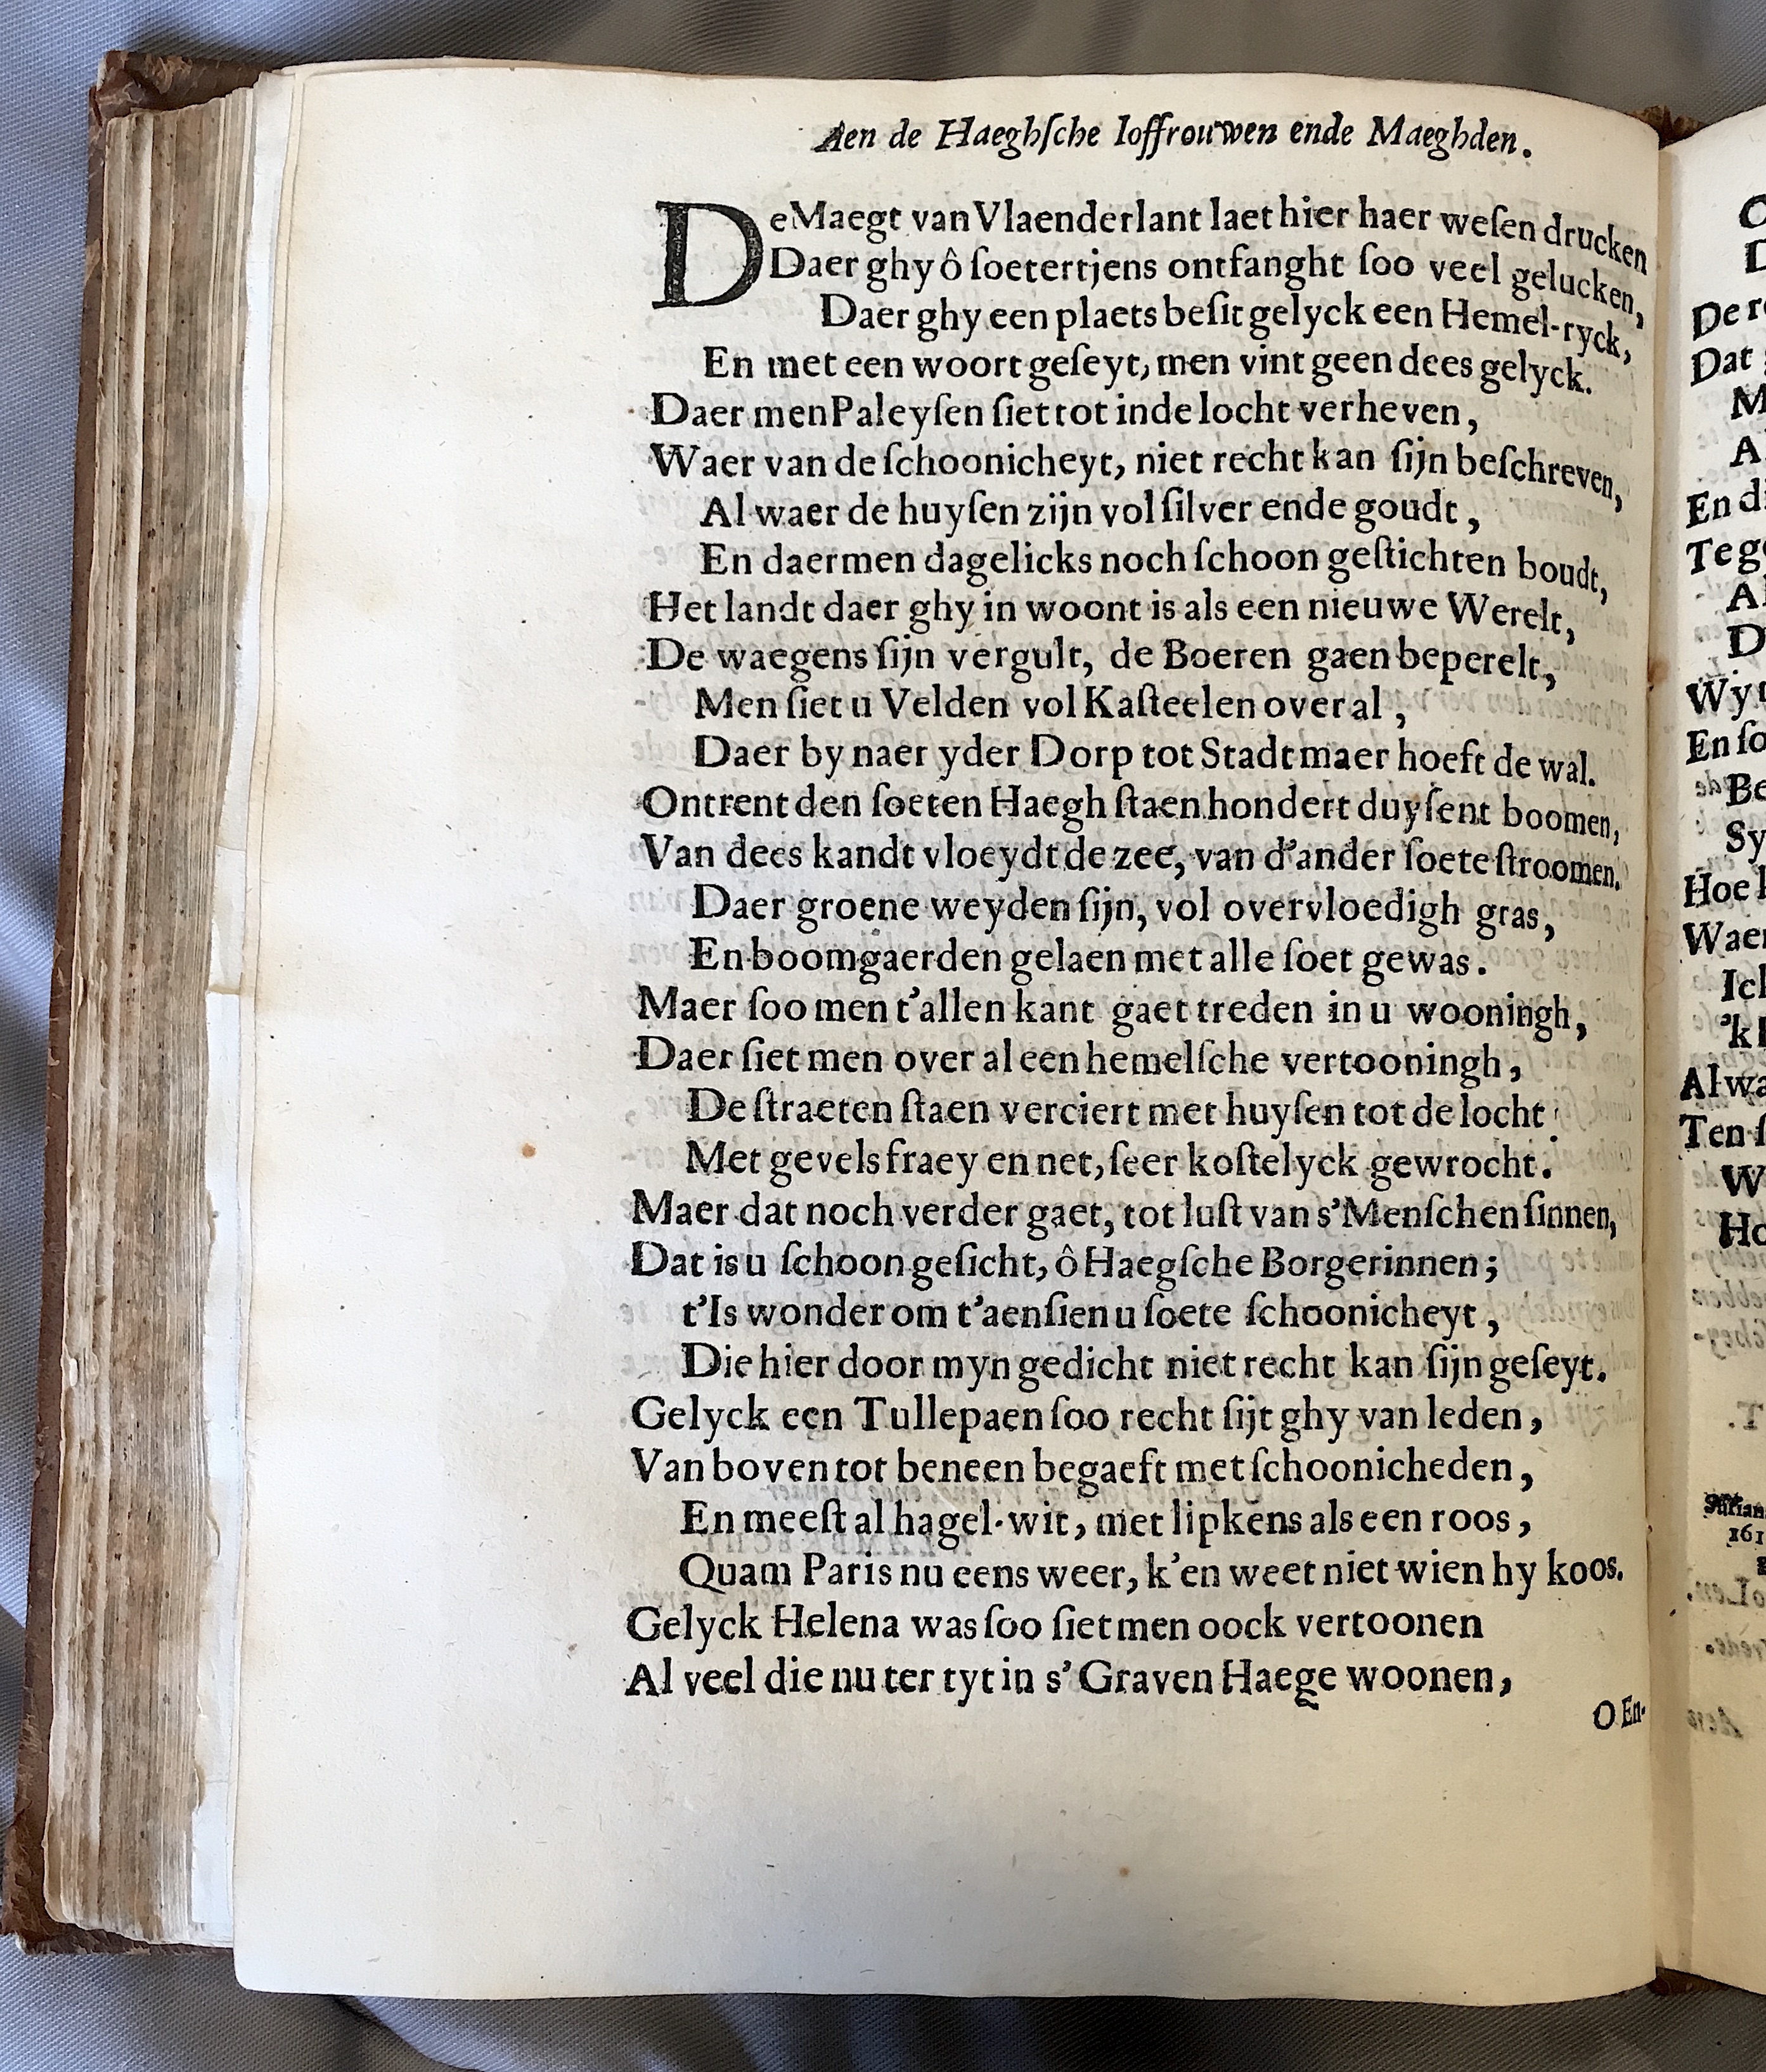 Aen de Haeghſche Ioffrouwen ende Maeghden.
De Maegt van Vlaenderlant laet hier haer weſen drucken
Daer ghy ô ſoetertjens ontfanght ſoo veel gelucken,
Daer ghy een plaets beſit gelyck een Hemel-ryck,
En met een woort geſeyt, men vint geen dees gelyck.
Daer men Paleyſen ſiet tot inde locht verheven,
Waer van de ſchoonicheyt, niet recht kan ſijn beſchreven,
Al waer de huyſen zijn vol ſilver ende goudt,
En daermen dagelicks noch ſchoon geſtichten boudt,
Het landt daer ghy in woont is als een nieuwe Werelt,
De waegens ſijn vergult, de Boeren gaen beperelt,
Men ſiet u Velden vol Kaſteelen over al,
Daer by naer yder Dorp tot Stadt maer hoeft de wal.
Ontrent den ſoeten Haegh ſtaen hondert duyſent boomen,
Van dees kandt vloeydt de zee, van d'ander ſoete ſtroomen.
Daer groene weyden ſijn, vol overvloedigh gras,
En boomgaerden gelaen met alle ſoet gewas.
Maer ſoo men t'allen kant gaet treden in u wooningh,
Daer ſiet men over al een hemelſche vertooningh,
De ſtraeten ſtaen verciert met huyſen tot de locht
Met gevels fraey en net, ſeer koſtelyck gewrocht.
Maer dat noch verder gaet, tot luſt van s'Menſchen ſinnen,
Dat is u ſchoon geſicht, ô Haegſche Borgerinnen;
t'Is wonder om t'aenſien u ſoete ſchoonicheyt,
Die hier door myn gedicht niet recht kan ſijn geſeyt.
Gelyck een Tullepaen ſoo recht ſijt ghy van leden,
Van boven tot beneen begaeft met ſchoonicheden,
En meeſt al hagel-wit, met lipkens als een roos,
Quam Paris nu eens weer, k'en weet niet wien hy koos.
Gelyck Helena was ſoo ſiet men oock vertoonen
Al veel die nu ter tyt in s'Graven Haege woonen,
O En-